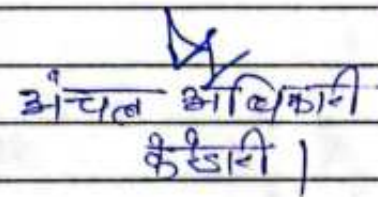 अंचल अधिकारी
केरेडारी।